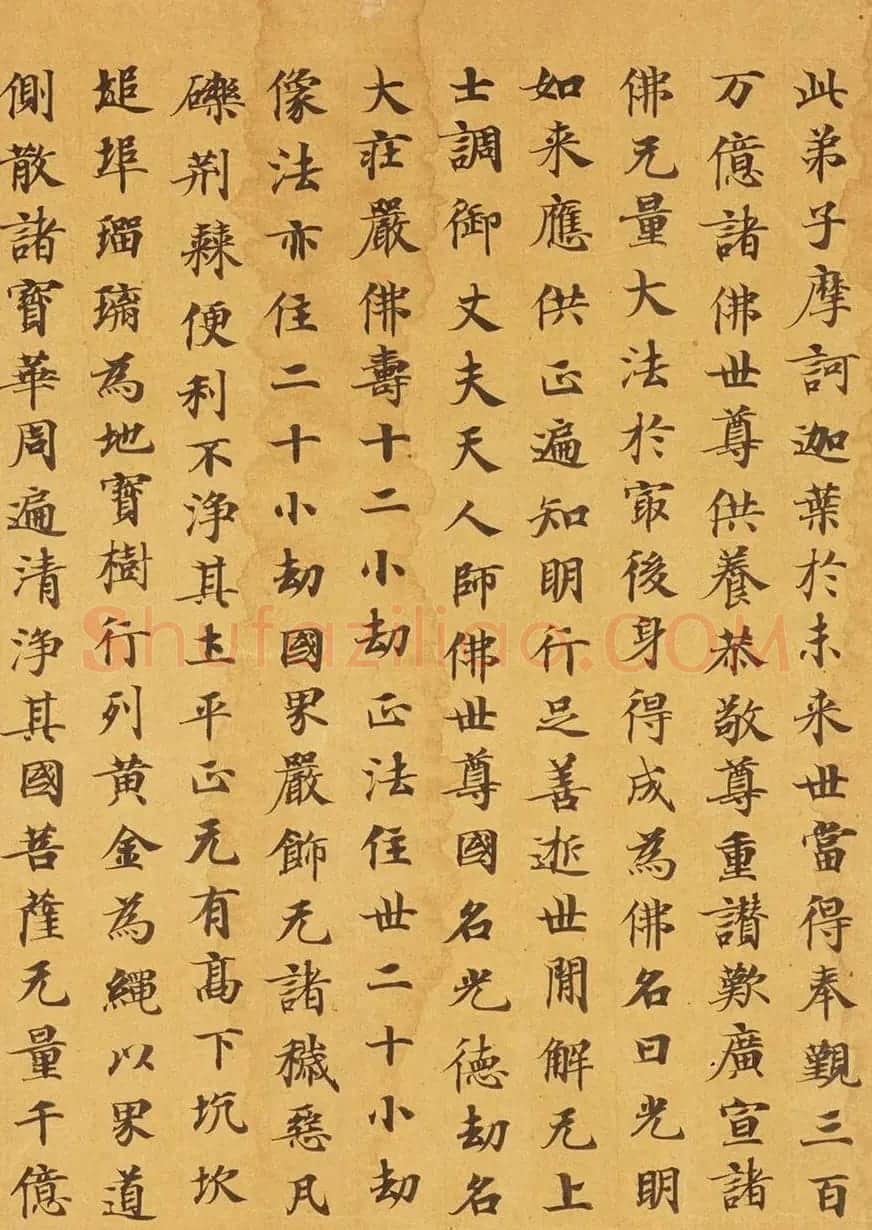 此弟子摩訶迦葉於未来世當得奉覲三百
万億諸佛世尊供養恭敬尊重讃歎廣宣諸
佛无量大法於冣後身得成為佛名曰光明
如来應供正遍知明行足善逝世間解无上
士調御丈夫天人師佛世尊國名光德劫名
大莊嚴佛壽十二小劫正法住世二十小劫
像法亦住二十小劫國界嚴飾无諸穢惡瓦
礫荊棘便利不淨其土平正无有高下坑坎
塠埠瑠璃為地寶樹行列黃金為繩以界道
側散諸寶華周遍清淨其國菩薩无量千億
Shufaziliao.COM